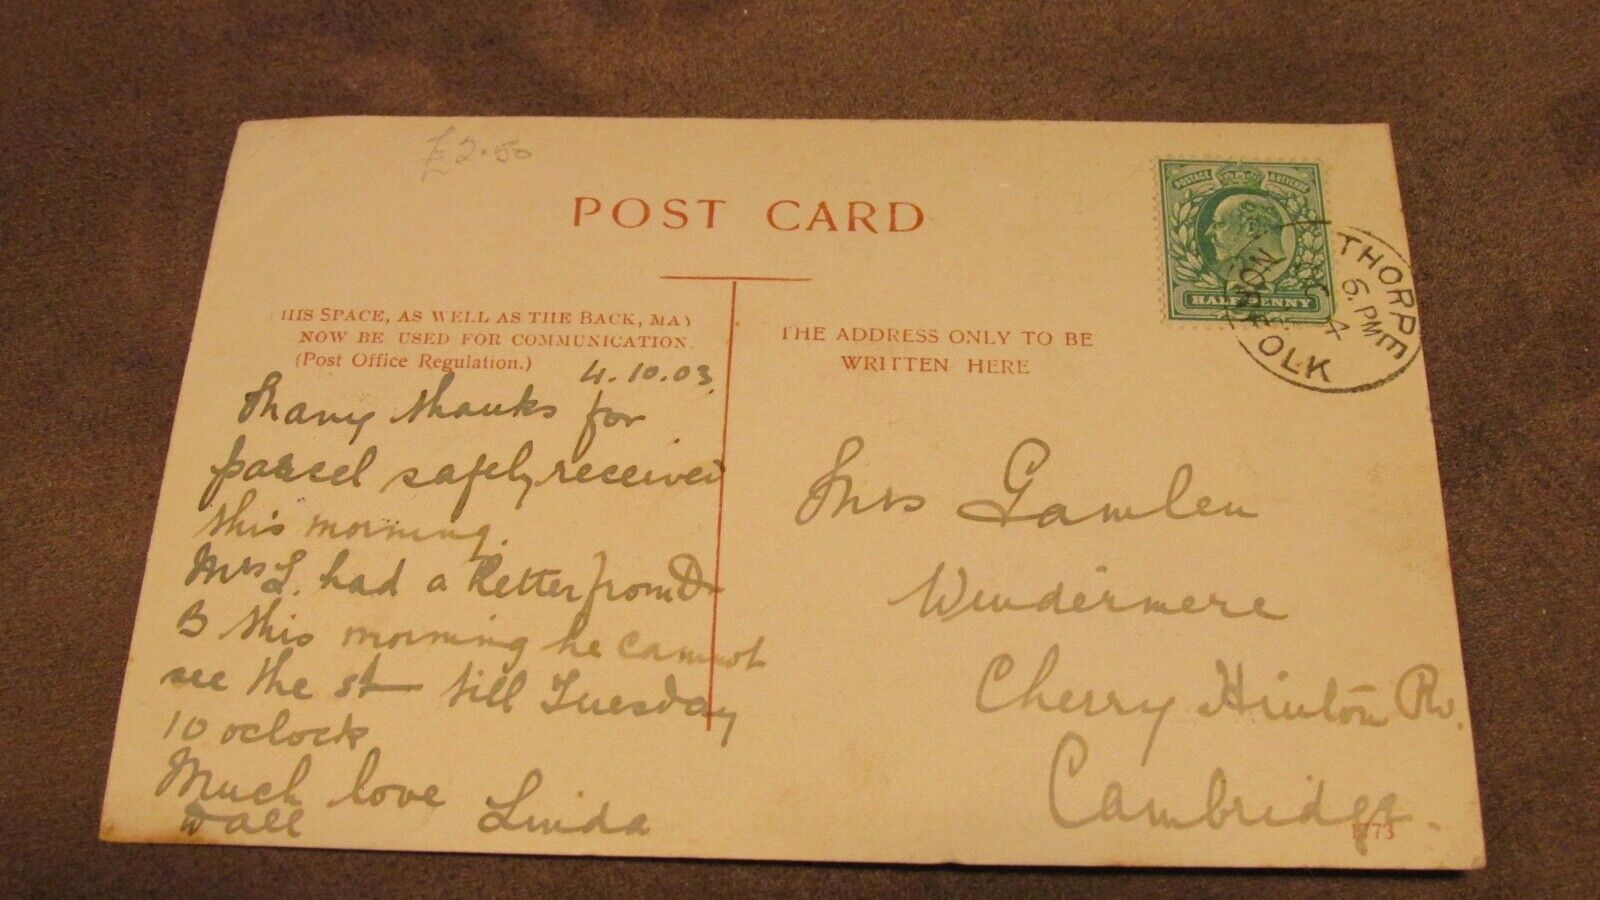 £2.50
POST CARD
HIS SPACE, AS WELL AS THE BACK, MAY
NOW BE USED FOR COMMUNICATION.
(Post Office Regulation.)
4.10.03
Many thanks for
parcel safely received
this morning.
Mrs L. had a letter from Dr
B this morning he cannot
see the st till Tuesday
10 oclock
Much love Linda
to all
THE ADDRESS ONLY TO BE
WRITTEN HERE
Mrs Gamlen
Windermere
Cherry Hinton Rd.
Cambridge.
1173
POSTAGE & REVENUE
HALF PENNY
THORPE
6. PM
OLK